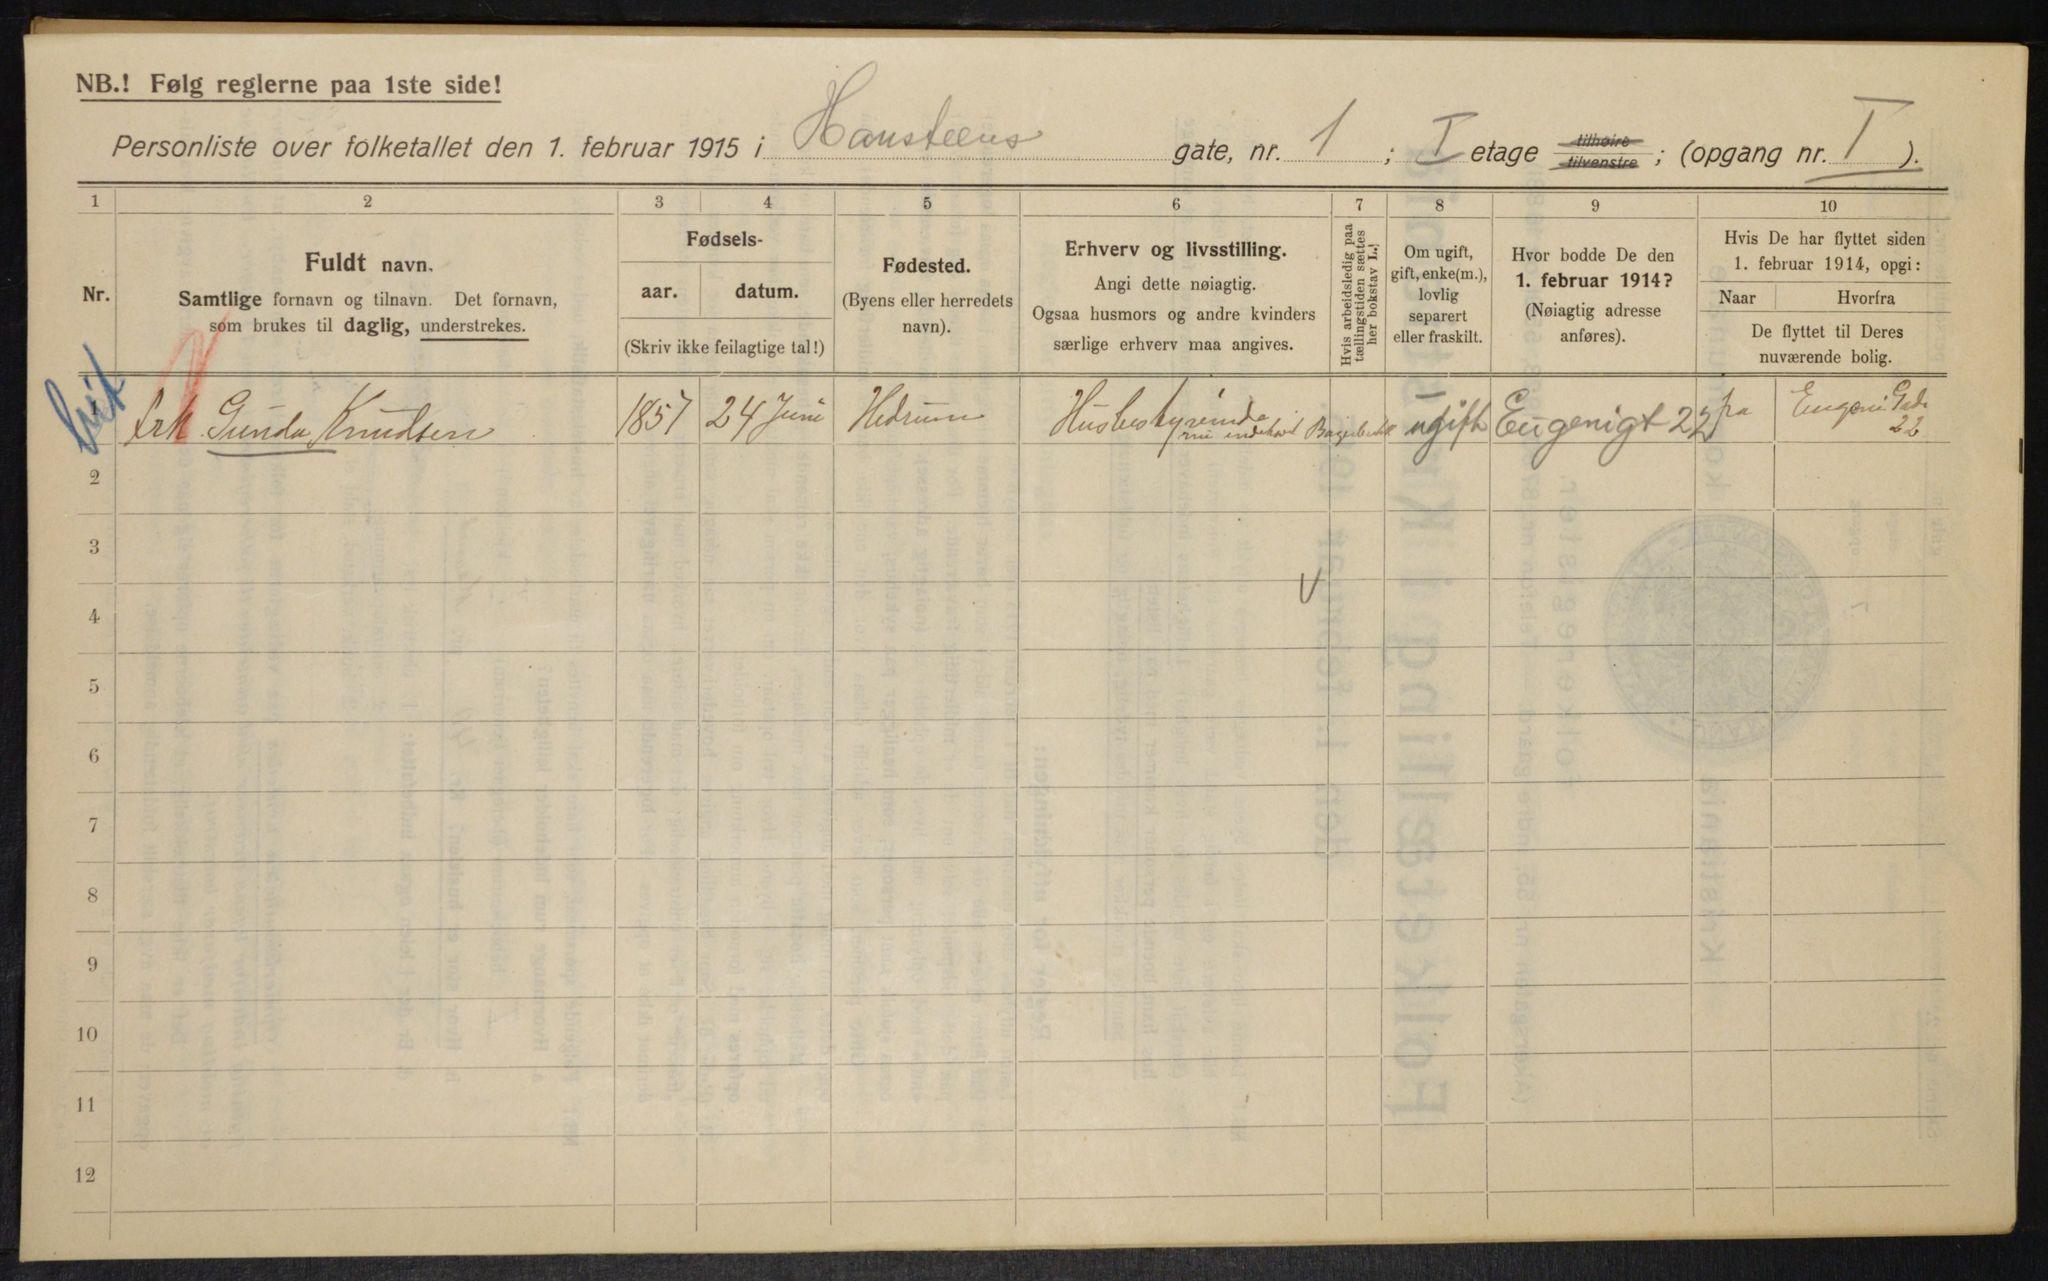 NB.! Følg reglerne paa 1ste side!
Personliste over folketallet den 1. februar 1915 i Hansteens gate, nr. 1 ; I etage tilhøire tilvenstre ; (opgang nr. I ).
1 2 3 4 5 6 7 8 9 10
Nr.
Fuldt navn.
Samtlige fornavn og tilnavn. Det fornavn,
som brukes til daglig, understrekes.
Fødsels-
aar. datum.
(Skriv ikke feilagtige tal!)
Fødested.
(Byens eller herredets
navn).
Erhverv og livsstilling.
Angi dette nøiagtig.
Ogsaa husmors og andre kvinders
særlige erhverv maa angives.
Hvis arbeidsledig paa
tællingstiden sættes
her bokstav L.!
Om ugift,
gift, enke(m.),
lovlig
separert
eller fraskilt.
Hvor bodde De den
1. februar 1914?
(Nøiagtig adresse
anføres).
Hvis De har flyttet siden
1. februar 1914, opgi:
Naar Hvorfra
De flyttet til Deres
nuværende bolig.
1 frk. Gunda Knudsen 1857 24 Juni Hedrum Husbestyrinde ugift Eugenigt 22 fra Eugeni Gade
22
2
3
4
5
6
7
8
9
10
11
12